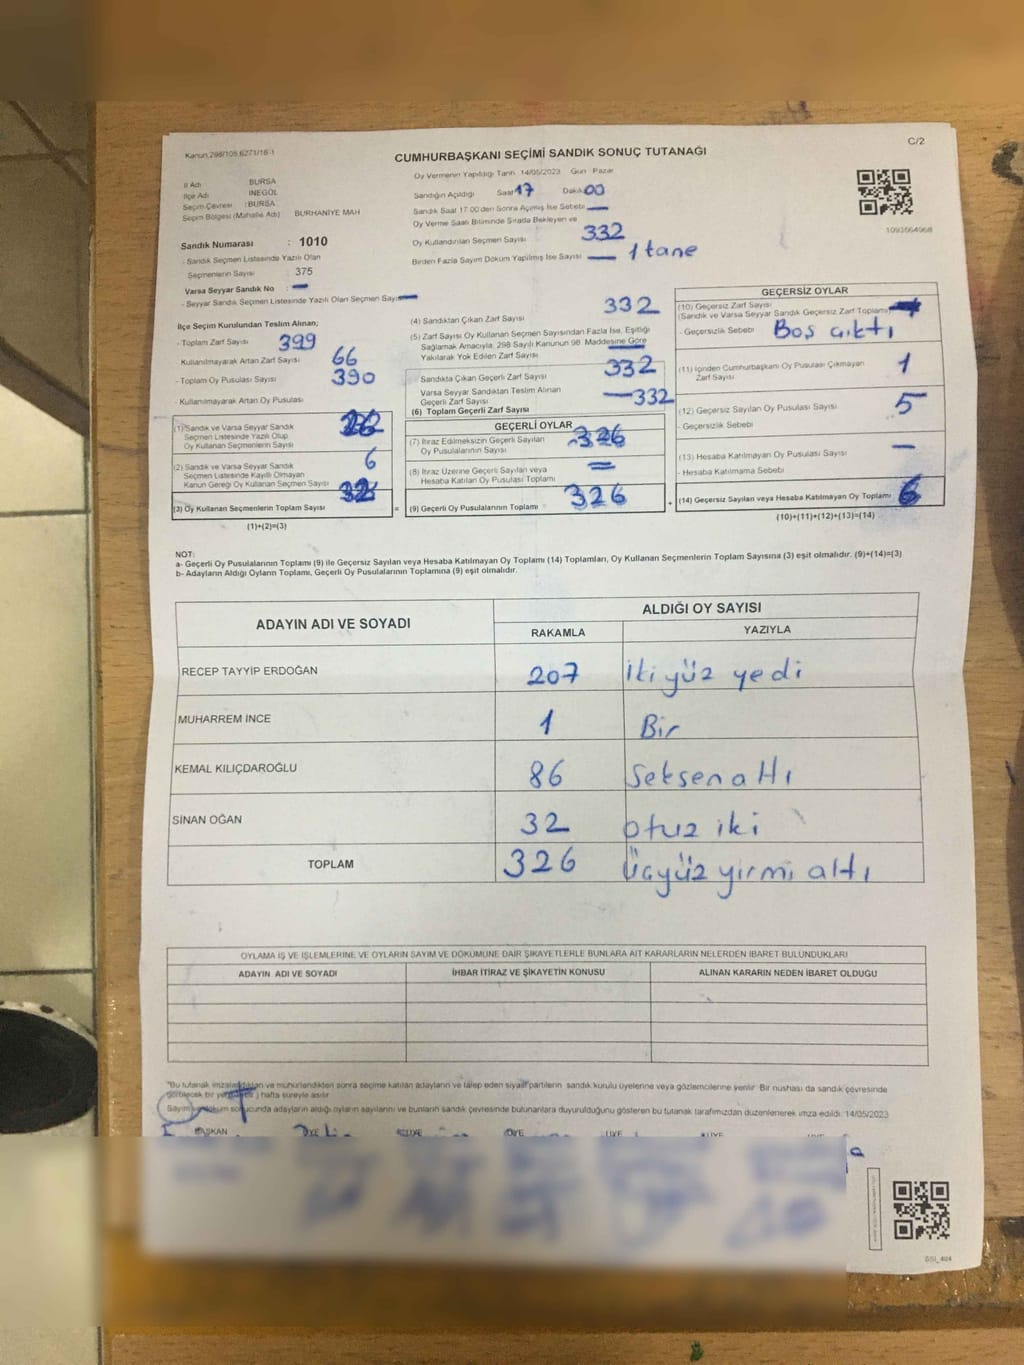 Kanun 298/105,6271/18-1
C/2
CUMHURBAŞKANI SEÇİMİ SANDIK SONUÇ TUTANAĞI
İl Adı BURSA
İlçe Adı INEGÖL
Seçim Çevresi : BURSA
Seçim Bölgesi (Mahalle Adı) BURHANİYE MAH
Sandık Numarası : 1010
- Sandık Seçmen Listesinde Yazılı Olan
Seçmenlerin Sayısı 375
Varsa Seyyar Sandık No :
- Seyyar Sandık Seçmen Listesinde Yazılı Olan Seçmen Sayısı
Oy Vermenin Yapıldığı Tarih 14/05/2023 Gün Pazar
Sandığın Açıldığı Saat 17 Dakika 00
Sandık Saat 17:00'den Sonra Açılmış İse Sebebi
Oy Verme Saati Bitiminde Sırada Bekleyen ve
Oy Kullandırılan Seçmen Sayısı 332
Birden Fazla Sayım Döküm Yapılmış İse Sayısı 1 tane
1093664968
İlçe Seçim Kurulundan Teslim Alınan;
- Toplam Zarf Sayısı 399
Kullanılmayarak Artan Zarf Sayısı 66
- Toplam Oy Pusulası Sayısı 390
- Kullanılmayarak Artan Oy Pusulası
(1) Sandık ve Varsa Seyyar Sandık
Seçmen Listesinde Yazılı Olup
Oy Kullanan Seçmenlerin Sayısı
(2) Sandık ve Varsa Seyyar Sandık
Seçmen Listesinde Kayıtlı Olmayan
Kanun Gereği Oy Kullanan Seçmen Sayısı 6
(3) Oy Kullanan Seçmenlerin Toplam Sayısı
(1)+(2)=(3)
(4) Sandıktan Çıkan Zarf Sayısı 332
(5) Zarf Sayısı Oy Kullanan Seçmen Sayısından Fazla İse, Eşitliği
Sağlamak Amacıyla, 298 Sayılı Kanunun 98 Maddesine Göre
Yakılarak Yok Edilen Zarf Sayısı
Sandıkta Çıkan Geçerli Zarf Sayısı 332
Varsa Seyyar Sandıktan Teslim Alınan
Geçerli Zarf Sayısı
(6) Toplam Geçerli Zarf Sayısı 332
GEÇERLİ OYLAR
(7) İtiraz Edilmeksizin Geçerli Sayılan
Oy Pusulalarının Sayısı 326
(8) İtiraz Üzerine Geçerli Sayılan veya
Hesaba Katılan Oy Pusulası Toplamı
= (9) Geçerli Oy Pusulalarının Toplamı 326 +
GEÇERSİZ OYLAR
(10) Geçersiz Zarf Sayısı
(Sandık ve Varsa Seyyar Sandık Geçersiz Zarf Toplamı)
- Geçersizlik Sebebi Boş çıktı
(11) İçinden Cumhurbaşkanı Oy Pusulası Çıkmayan
Zarf Sayısı 1
(12) Geçersiz Sayılan Oy Pusulası Sayısı 5
- Geçersizlik Sebebi
(13) Hesaba Katılmayan Oy Pusulası Sayısı —
- Hesaba Katılmama Sebebi
(14) Geçersiz Sayılan veya Hesaba Katılmayan Oy Toplamı 6
(10)+(11)+(12)+(13)=(14)
NOT:
a- Geçerli Oy Pusulalarının Toplamı (9) ile Geçersiz Sayılan veya Hesaba Katılmayan Oy Toplamı (14) Toplamları, Oy Kullanan Seçmenlerin Toplam Sayısına (3) eşit olmalıdır. (9)+(14)=(3)
b- Adayların Aldığı Oyların Toplamı, Geçerli Oy Pusulalarının Toplamına (9) eşit olmalıdır.
ADAYIN ADI VE SOYADI ALDIĞI OY SAYISI
RAKAMLA YAZIYLA
RECEP TAYYİP ERDOĞAN 207 iki yüz yedi
MUHARREM İNCE 1 Bir
KEMAL KILIÇDAROĞLU 86 Seksen altı
SİNAN OĞAN 32 otuz iki
TOPLAM 326 üçyüz yirmi altı
OYLAMA İŞ VE İŞLEMLERİNE VE OYLARIN SAYIM VE DÖKÜMÜNE DAİR ŞİKAYETLERLE BUNLARA AİT KARARLARIN NELERDEN İBARET BULUNDUKLARI
ADAYIN ADI VE SOYADI İHBAR İTİRAZ VE ŞİKAYETİN KONUSU ALINAN KARARIN NEDEN İBARET OLDUĞU
"Bu tutanak imzalandıktan ve mühürlendikten sonra seçime katılan adayların ve talep eden siyasi partilerin sandık kurulu üyelerine veya gözlemcilerine verilir. Bir nushası da sandık çevresinde
görülecek bir yere bir hafta süreyle asılır
Sayım ve döküm sonucunda adayların aldığı oyların sayılarını ve bunların sandık çevresinde bulunanlara duyurulduğunu gösteren bu tutanak tarafımızdan düzenlenerek imza edildi. 14/05/2023
BAŞKAN ÜYE ÜYE ÜYE ÜYE ÜYE ÜYE